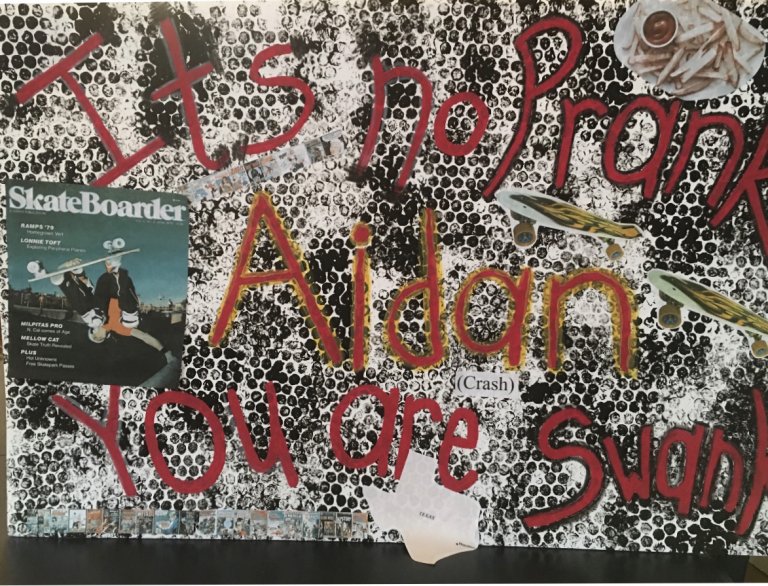 Its no Prank
SkateBoarder
RAMPS '79
Homegrown Vert
LONNIE TOFT
Exploring Paraherial Planes
Aidan
MILPITAS PRO
N. Cal comes of Age
MELLOW CAT
Skate Truth Revealed
PLUS
Hot Unknowns
Free Skatepark Passes
(Crash)
You are Swank
TEXAS